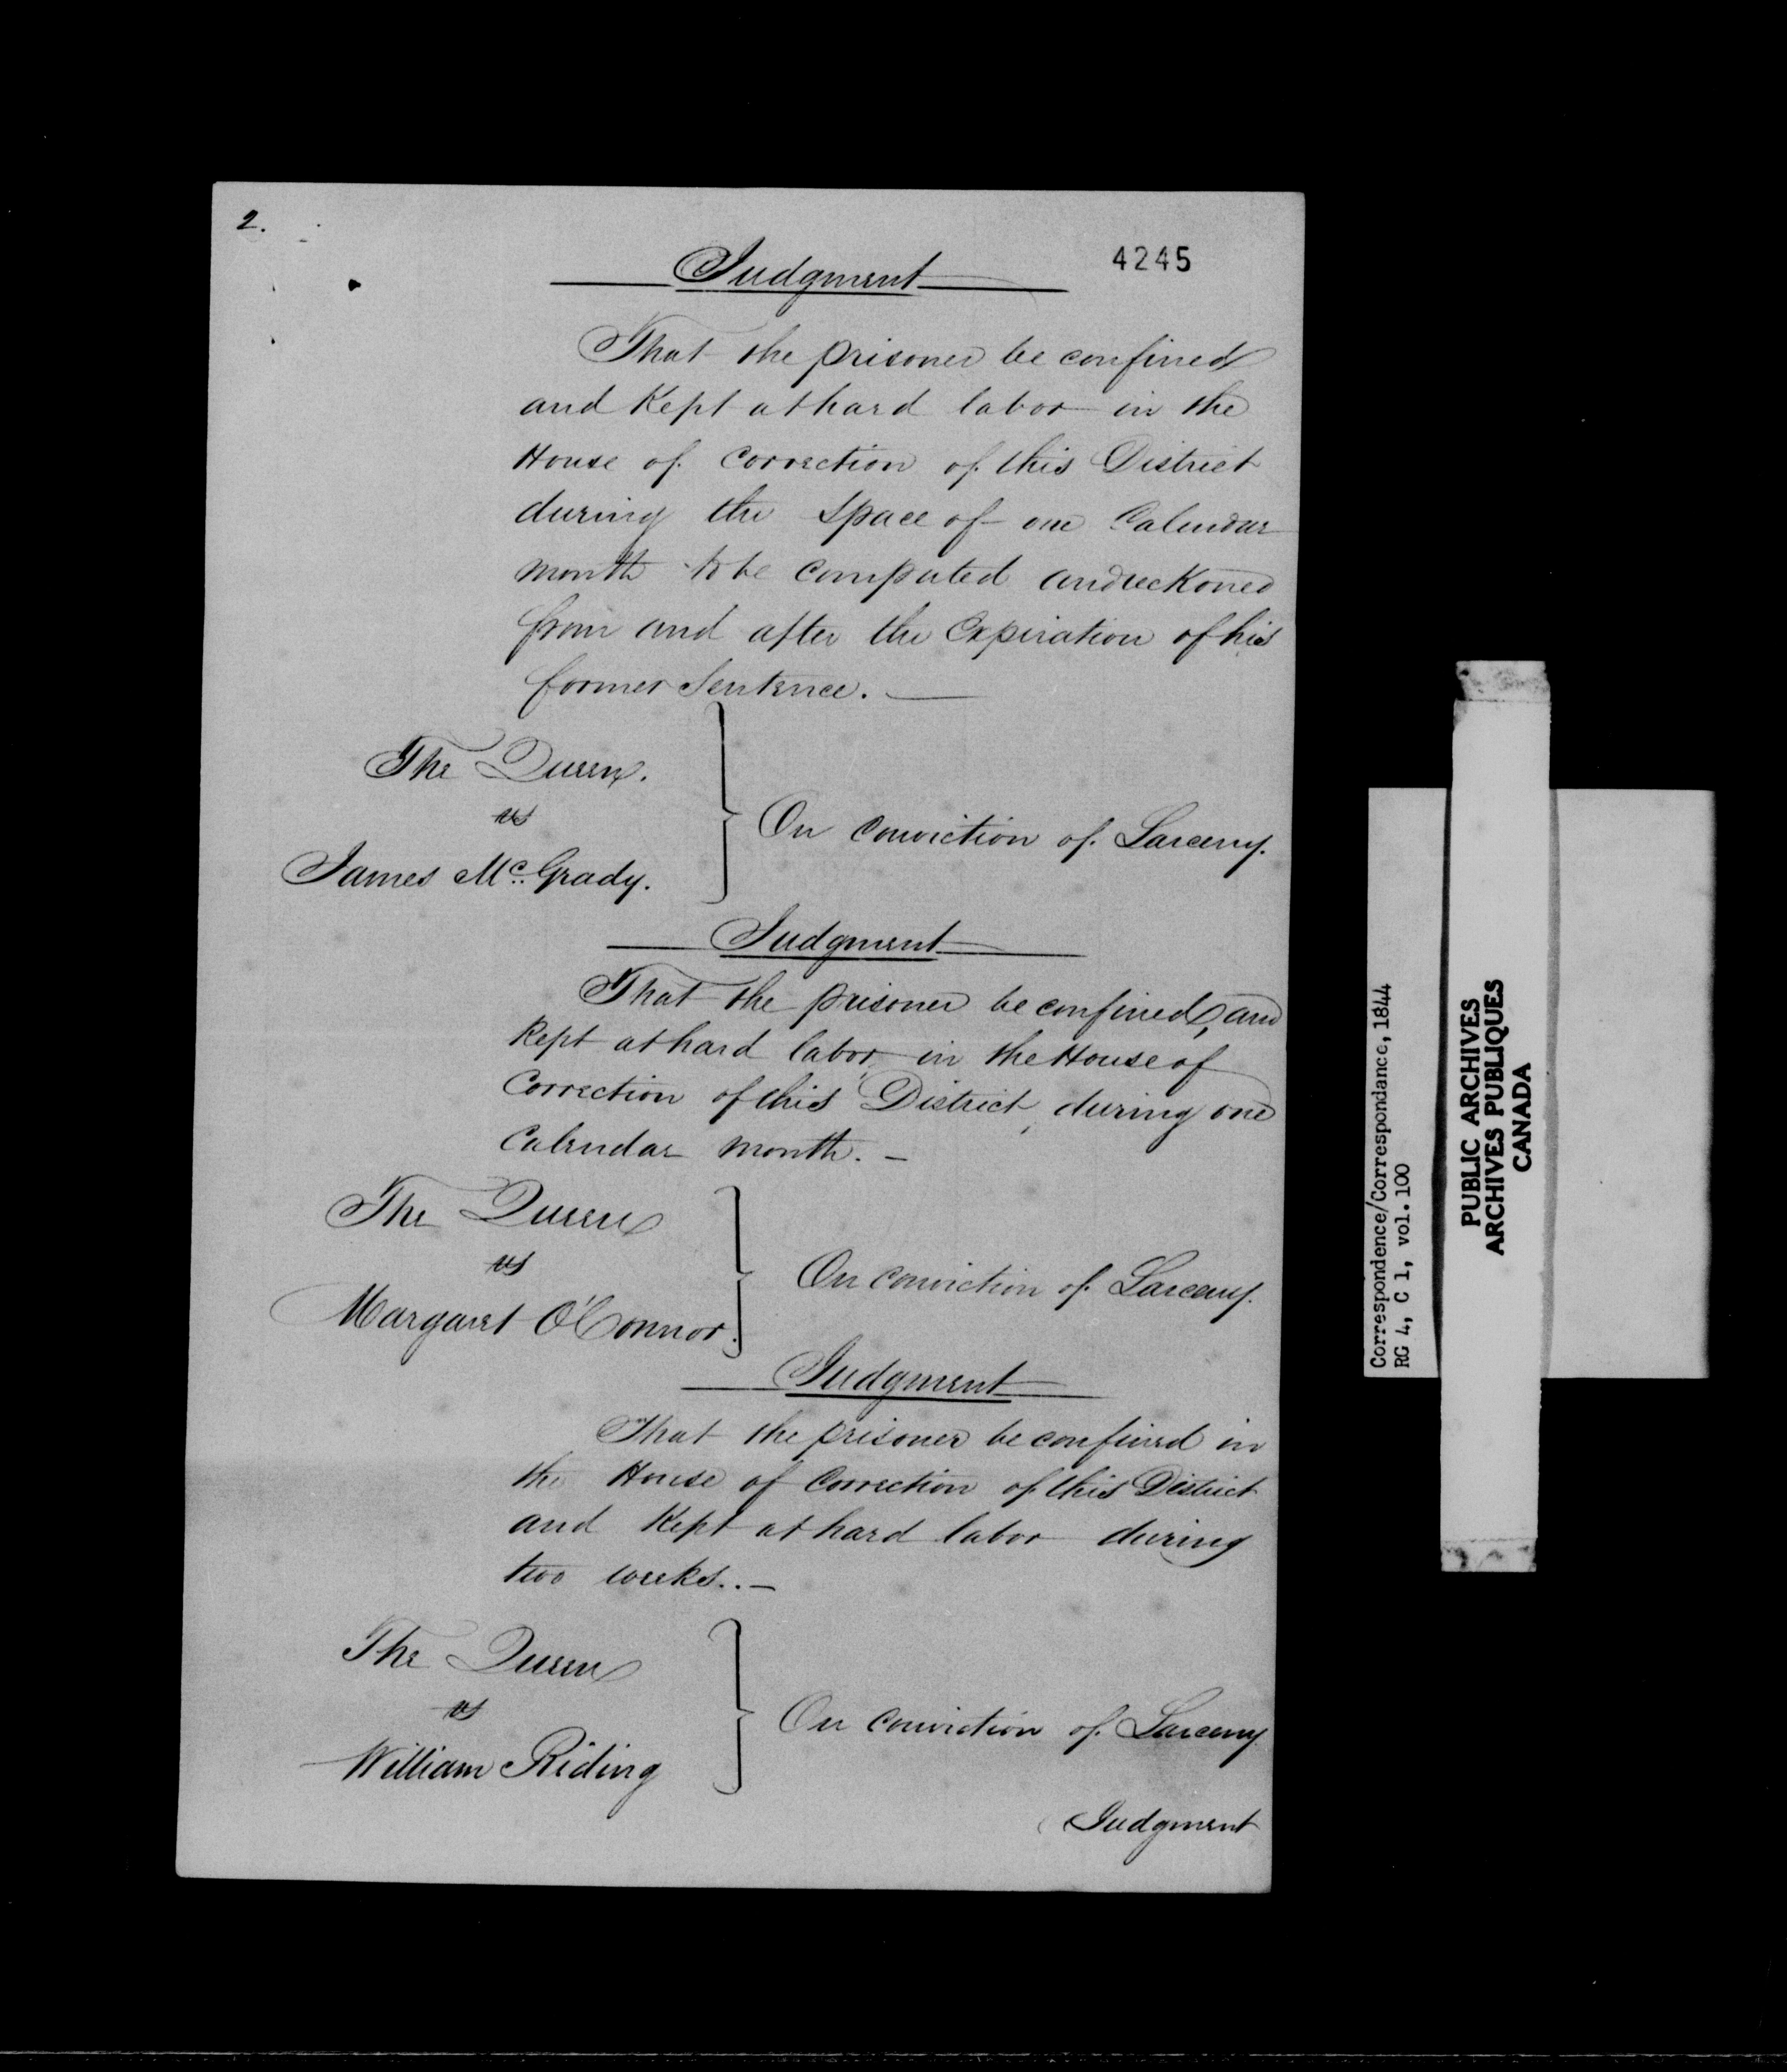 2.
4245
Judgment
That the prisoner be confined
and Kept at hard labor in the
House of Correction of this District
during the space of one Calendar
month to be computed and reckoned
from and after the Expiration of his
former Sentence.
The Queen.
vs
James Mc. Grady.
On Conviction of Larceny.
Judgment
That the prisoner be confined, and
Kept at hard labor in the House of
Correction of this District, during one
Calendar month. -
The Queen
vs
Margaret O'Connor.
On Conviction of Larceny.
Judgment
That the prisoner be confined in
the House of Correction of this District
and Kept at hard labor during
two weeks.. -
The Queen
vs
William Riding
On Conviction of Larceny
Judgment
Correspondence/Correspondance, 1844
RG 4, C 1, vol. 100
PUBLIC ARCHIVES
ARCHIVES PUBLIQUES
CANADA